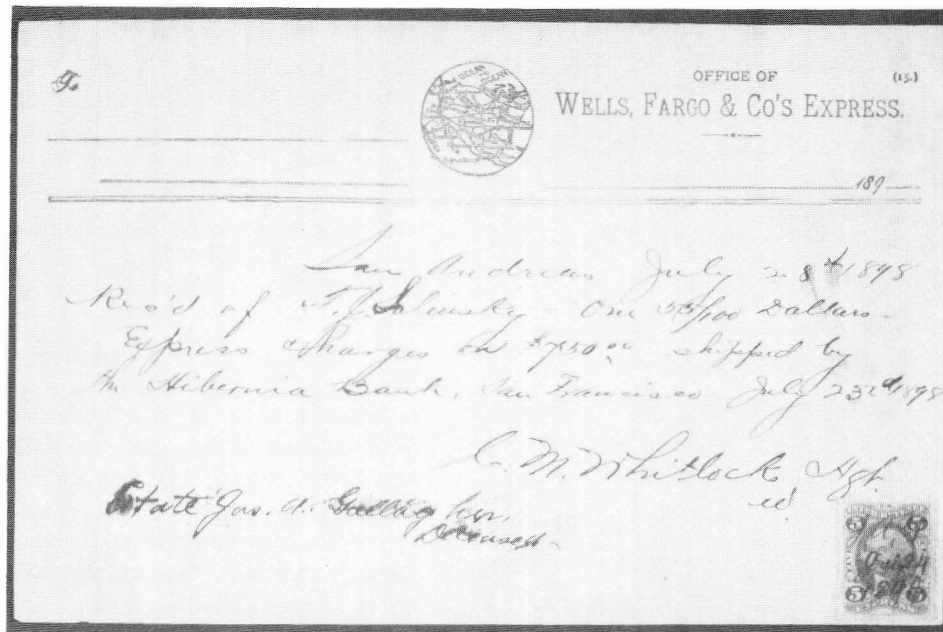 OFFICE OF (15.)
WELLS, FARGO & CO'S EXPRESS.
189
San Andreas July 28th 1898
Rec'd of F. J. Solinsky One 55/100 Dollars
Express charges on $750.00 shipped by
the Hibernia Bank, San Francisco July 23rd 1898
C. M. Whitlock Agt.
Estate Jas. A. Gallagher.
Deceased
5 5
5 5